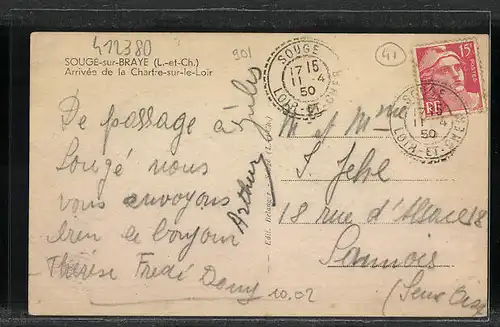 412380
901
41
SOUGÉ-sur-BRAYE (L.-et-Ch.)
Arrivée de la Chartre-sur-le-Loir
SOUGÉ
17 15
11 - 4
50
LOIR-ET-CHER
15F
POSTES
RF
SOUGÉ
4
50
LOIR-ET-CHER
De passage à
Sougé nous
vous envoyons
bien le bonjour
Thérèse Fredi Deny
Jules
Arthur
10.02
M et Mme
J. Jehl
18 rue d'Alsace 18
Sannois
(Seine Oise